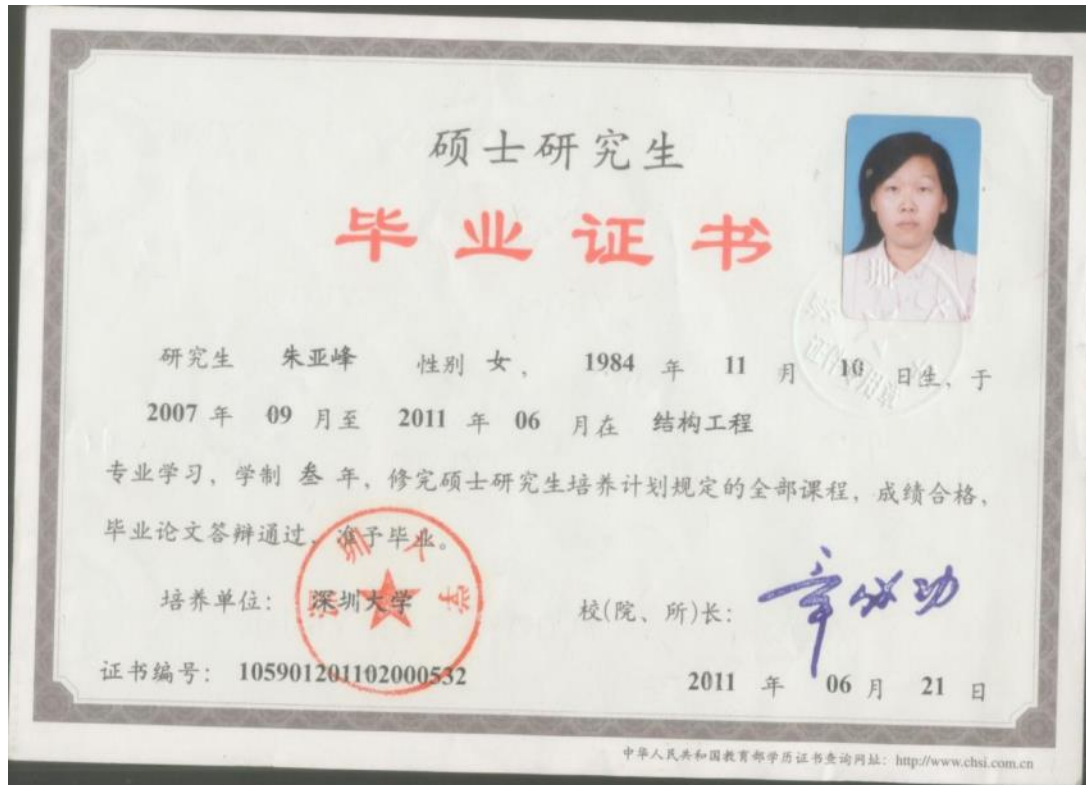 硕士研究生
毕业证书
研究生 朱亚峰 性别 女， 1984 年 11 月 10 日生、于
2007 年 09 月至 2011 年 06 月在 结构工程
专业学习，学制 叁 年，修完硕士研究生培养计划规定的全部课程，成绩合格，
毕业论文答辩通过，准予毕业。
培养单位： 深圳大学
深圳大学
校(院、所)长： 章必功
证书编号： 105901201102000532
2011 年 06 月 21 日
中华人民共和国教育部学历证书查询网址：http://www.chsi.com.cn